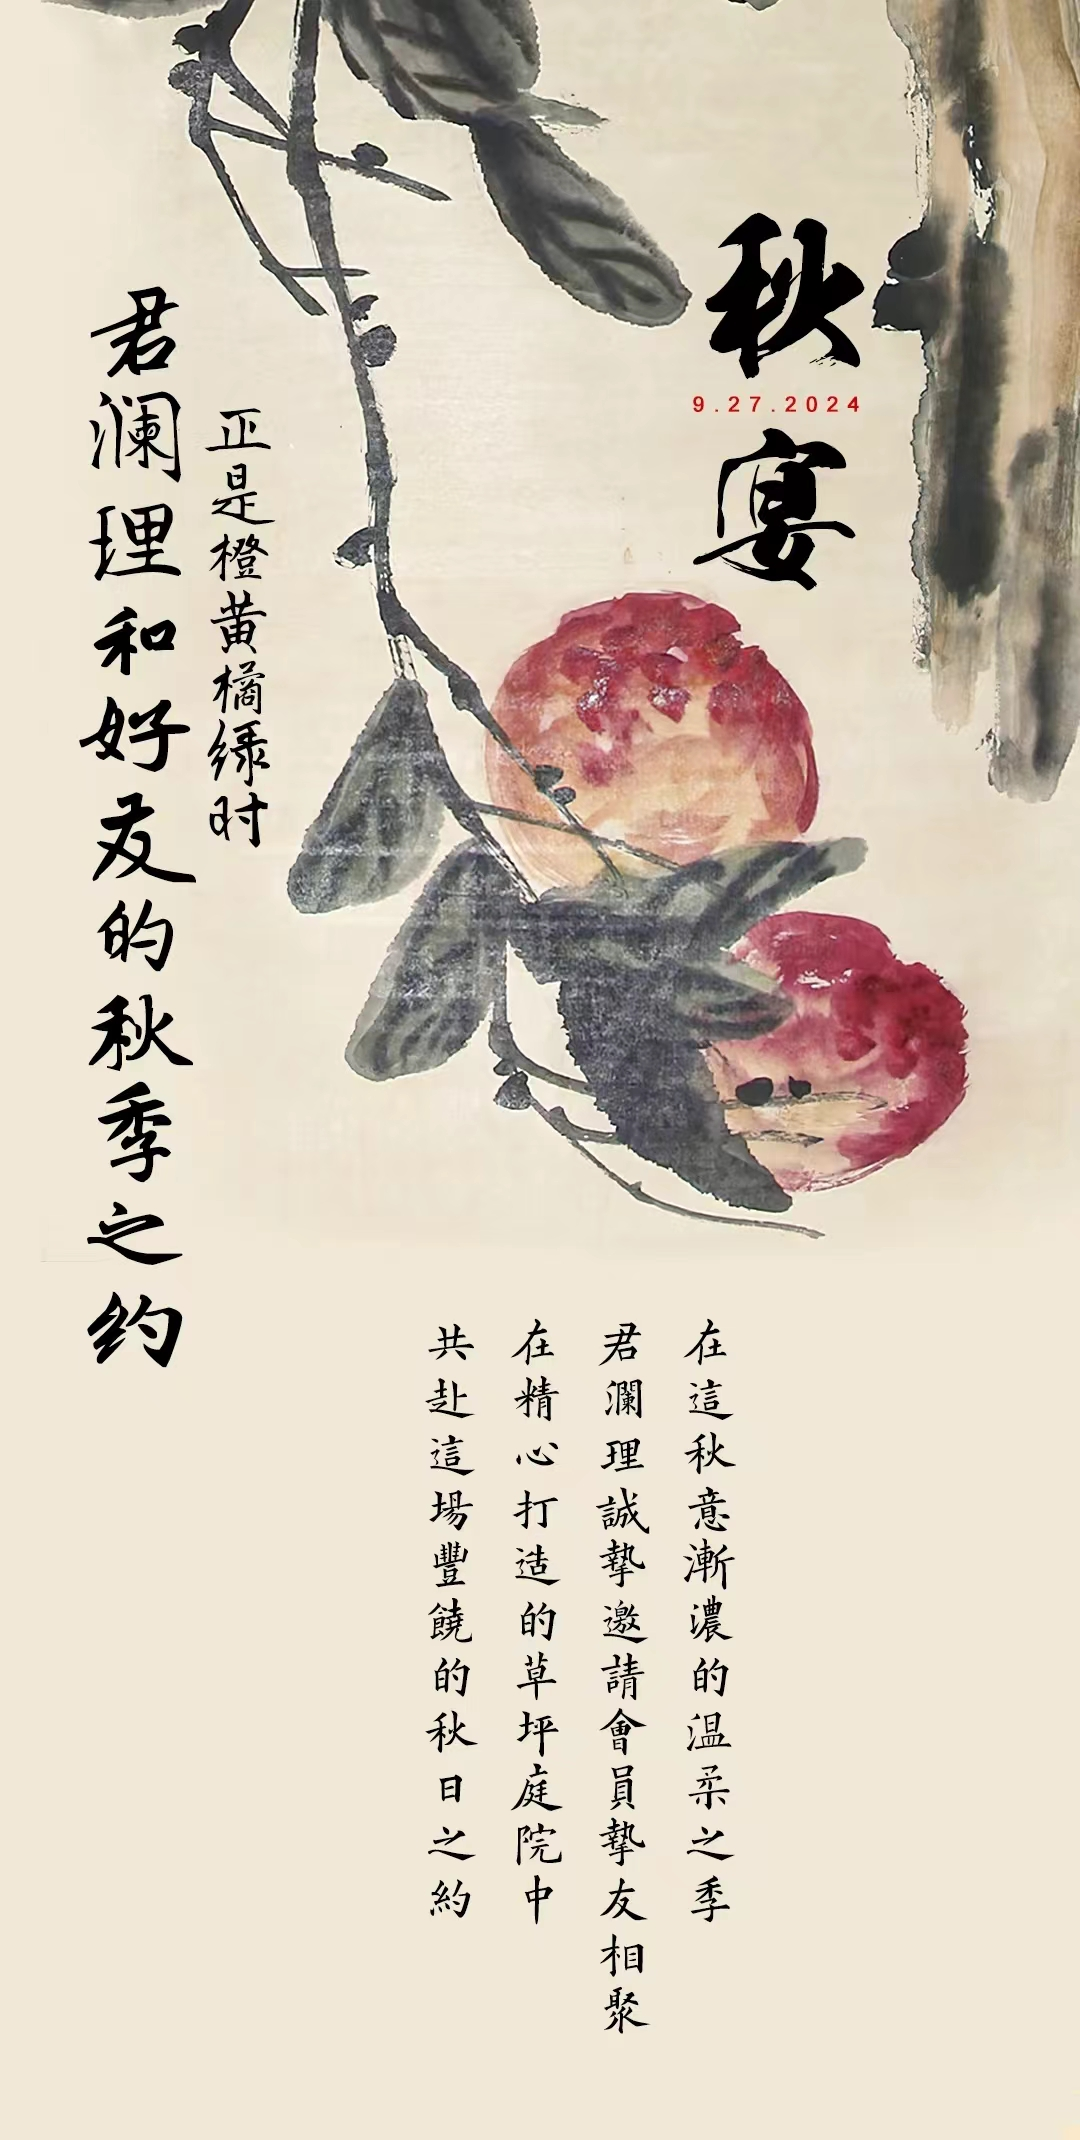 秋
9.27.2024
宴
正是橙黄橘绿时
君澜理和好友的秋季之约
在這秋意漸濃的温柔之季
君瀾理誠摯邀請會員摯友相聚
在精心打造的草坪庭院中
共赴這場豐饒的秋日之約